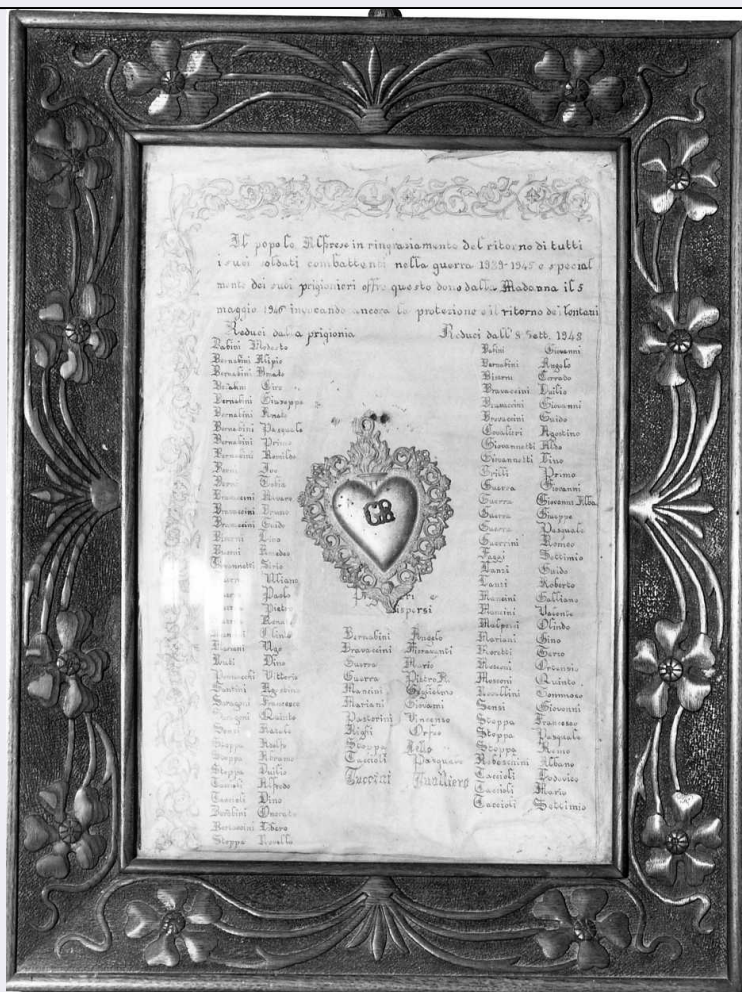 Il popolo Alferese in ringraziamento del ritorno di tutti
i suoi soldati combattenti nella guerra 1939-1945 e special
mente dei suoi prigionieri offre questo dono dalla Madonna il 5
maggio 1946 invocando ancora la protezione e il ritorno dei lontani
Reduci dalla prigionia
Babini Modesto
Bernabini Alipio
Bernabini
Bernabini Ciro
Bernabini Giuseppe
Bernabini Renato
Bernabini Pasquale
Bernabini Primo
Bernabini Romildo
Berni Ivo
Berni
Bravaccini
Bravaccini Bruno
Bravaccini Guido
Biserni Lino
Biserni Amedeo
Silvio
Uliano
Paolo
Pietro
Renato
Olinto
Mariani Ugo
Dino
Vittorio
Santini Agostino
Saragoni Francesco
Saragoni Quinto
Sensi Natale
Stoppa Adolfo
Stoppa Abramo
Stoppa Duilio
Taccioli Alfredo
Taccioli Dino
Onorato
Bravaccini Libero
Stoppa Novello
GR
Prigionieri e
Dispersi
Bernabini Angelo
Bravaccini Fioravanti
Guerra Mario
Guerra Pietro R.
Mancini Guglielmo
Mariani Giovanni
Pastorini Vincenzo
Righi Orfeo
Stoppa Nello
Taccioli Pasquale
Tuccini Gualtiero
Reduci dall'8 Sett. 1943
Babini Giovanni
Bernabini Angelo
Biserni Corrado
Bravaccini Duilio
Bravaccini Giovanni
Bravaccini Guido
Cavalieri Agostino
Giovannetti Aldo
Giovannetti Lino
Grilli Primo
Guerra Giovanni
Guerra Giovanni Alba
Guerra Giuseppe
Guerra Pasquale
Guerrini Romeo
Faggi Settimio
Lanzi Guido
Lanzi Roberto
Mancini Galliano
Mancini Valente
Malpezzi Olindo
Mariani Gino
Moretti Terzo
Mosconi Ortensio
Mosconi Quinto
Novellini Tommaso
Sensi Giovanni
Stoppa Francesco
Stoppa Pasquale
Stoppa Remo
Rebaschini Albano
Taccioli Lodovico
Taccioli Mario
Taccioli Settimio